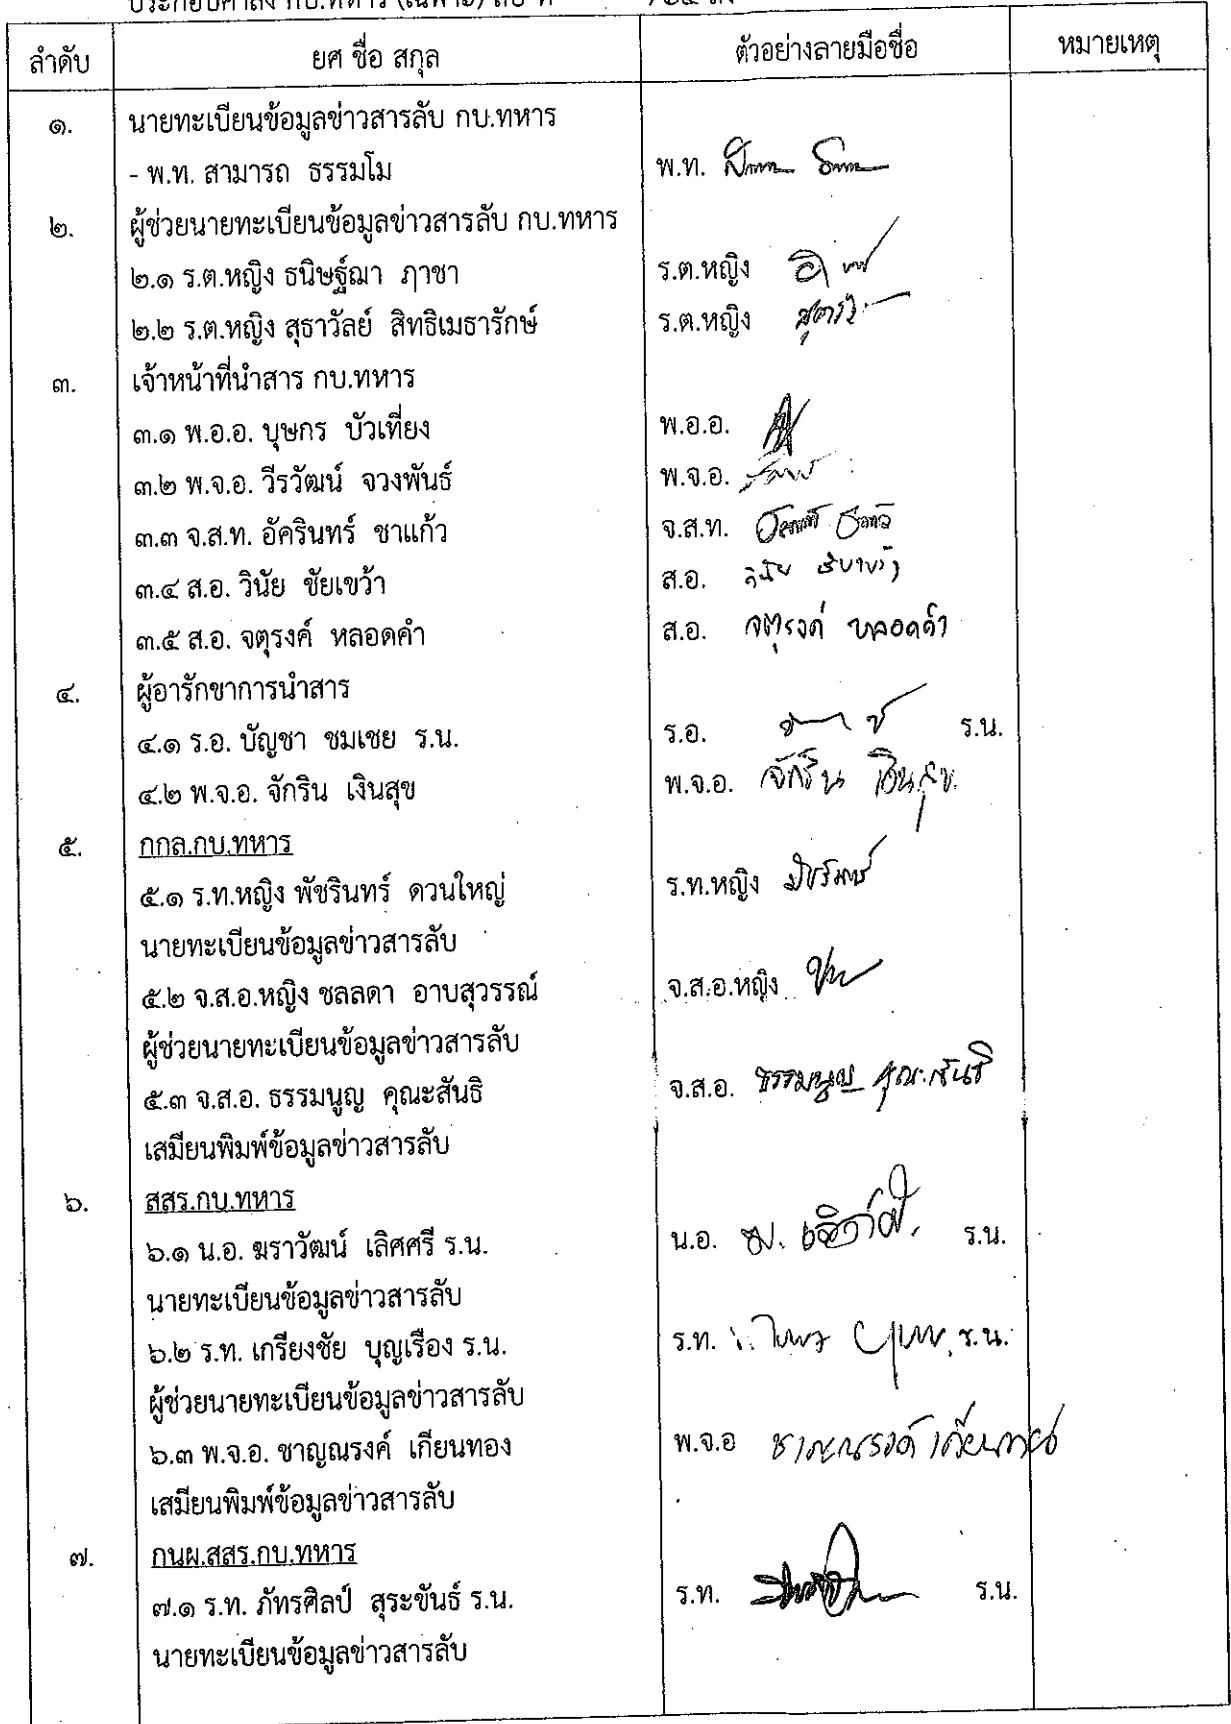 ลำดับ ยศ ชื่อ สกุล ตัวอย่างลายมือชื่อ หมายเหตุ
๑. นายทะเบียนข้อมูลข่าวสารลับ กบ.ทหาร
- พ.ท. สามารถ ธรรมโม พ.ท.
๒. ผู้ช่วยนายทะเบียนข้อมูลข่าวสารลับ กบ.ทหาร
๒.๑ ร.ต.หญิง ธนิษฐ์ฌา ภาชา ร.ต.หญิง
๒.๒ ร.ต.หญิง สุธาวัลย์ สิทธิเมธารักษ์ ร.ต.หญิง
๓. เจ้าหน้าที่นำสาร กบ.ทหาร
๓.๑ พ.อ.อ. บุษกร บัวเที่ยง พ.อ.อ.
๓.๒ พ.จ.อ. วีรวัฒน์ จวงพันธ์ พ.จ.อ.
๓.๓ จ.ส.ท. อัครินทร์ ชาแก้ว จ.ส.ท.
๓.๔ ส.อ. วินัย ชัยเขว้า ส.อ.
๓.๕ ส.อ. จตุรงค์ หลอดคำ ส.อ. จตุรงค์ หลอดคำ
๔. ผู้อารักขาการนำสาร
๔.๑ ร.อ. บัญชา ชมเชย ร.น. ร.อ. ร.น.
๔.๒ พ.จ.อ. จักริน เงินสุข พ.จ.อ. จักริน เงินสุข
๕. กกล.กบ.ทหาร
๕.๑ ร.ท.หญิง พัชรินทร์ ดวนใหญ่ ร.ท.หญิง
นายทะเบียนข้อมูลข่าวสารลับ
๕.๒ จ.ส.อ.หญิง ชลลดา อาบสุวรรณ์ จ.ส.อ.หญิง
ผู้ช่วยนายทะเบียนข้อมูลข่าวสารลับ
๕.๓ จ.ส.อ. ธรรมนูญ คุณะสันธิ จ.ส.อ. ธรรมนูญ คุณะสันธิ
เสมียนพิมพ์ข้อมูลข่าวสารลับ
๖. สสร.กบ.ทหาร
๖.๑ น.อ. ฆราวัฒน์ เลิศศรี ร.น. น.อ. ร.น.
นายทะเบียนข้อมูลข่าวสารลับ
๖.๒ ร.ท. เกรียงชัย บุญเรือง ร.น. ร.ท. ร.น.
ผู้ช่วยนายทะเบียนข้อมูลข่าวสารลับ
๖.๓ พ.จ.อ. ชาญณรงค์ เกียนทอง พ.จ.อ ชาญณรงค์ เกียนทอง
เสมียนพิมพ์ข้อมูลข่าวสารลับ
๗. กนผ.สสร.กบ.ทหาร
๗.๑ ร.ท. ภัทรศิลป์ สุระขันธ์ ร.น. ร.ท. ร.น.
นายทะเบียนข้อมูลข่าวสารลับ